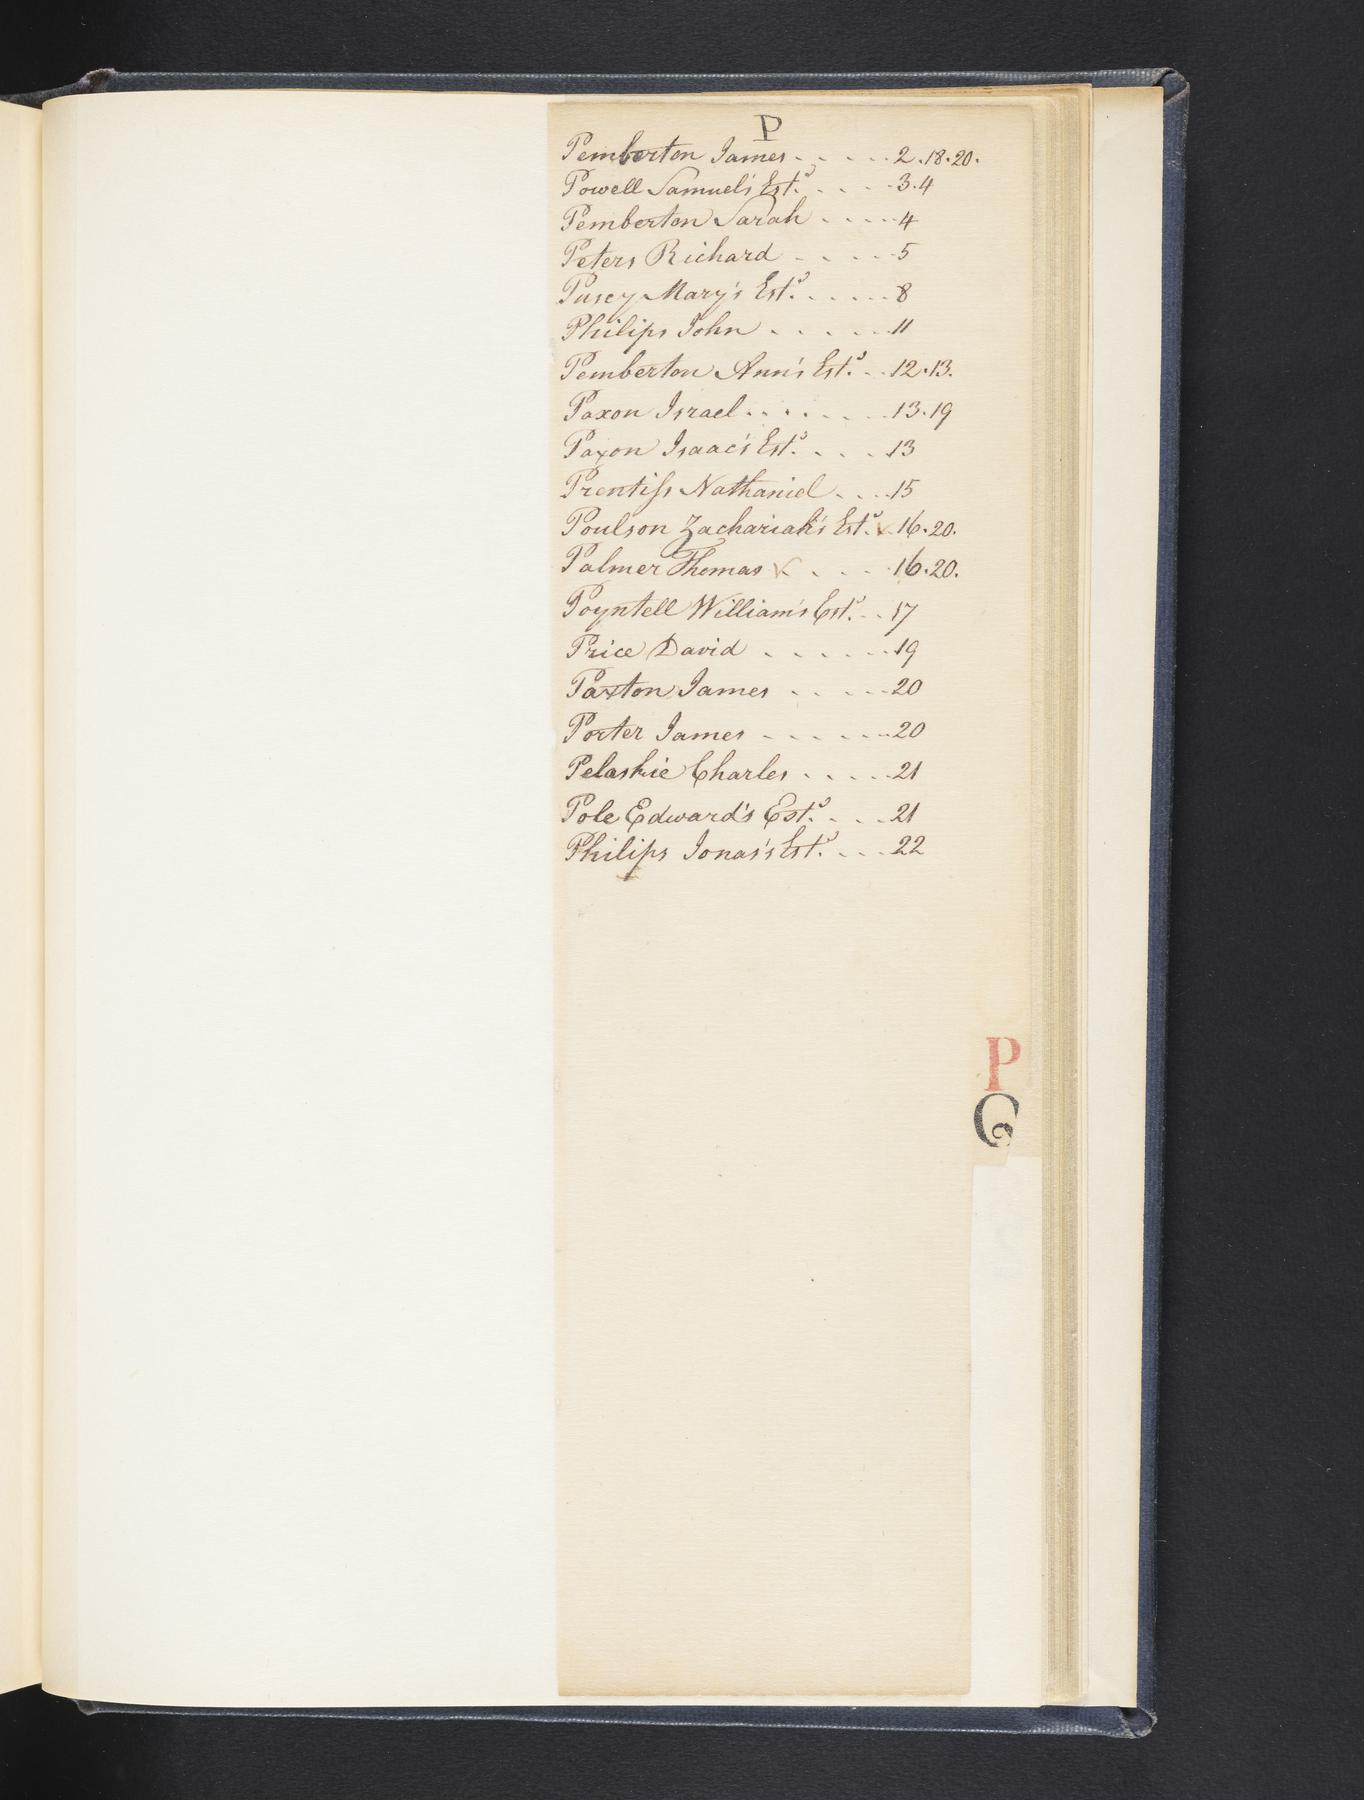 P
Pemberton James - - - - - 2.18.20.
Powell Samuel's Est.ᵉ - - - - 3.4
Pemberton Sarah - - - - - 4
Peters Richard - - - - - 5
Pusey Mary's Est.ᵉ - - - - - 8
Philips John - - - - - - 11
Pemberton Ann's Est.ᵉ - - 12.13.
Paxon Israel - - - - - - - 13.19
Paxon Isaac's Est.ᵉ - - - - 13
Prentiſs Nathaniel - - - - 15
Poulson Zachariah's Est.ᵉ ✓ 16.20.
Palmer Thomas ✓ - - - - 16.20.
Poyntell William's Est.ᵉ - - 17
Price David - - - - - - 19
Paxton James - - - - - 20
Porter James - - - - - - 20
Pelaskie Charles - - - - - 21
Pole Edward's Est.ᵉ - - - 21
Philips Jonas's Est.ᵉ - - - 22
P
Q